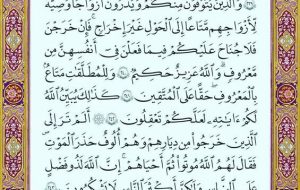 وَالَّذِينَ يُتَوَفَّوْنَ مِنكُمْ وَيَذَرُونَ أَزْوَاجًا وَصِيَّةً
لِّأَزْوَاجِهِم مَّتَاعًا إِلَى الْحَوْلِ غَيْرَ إِخْرَاجٍ ۚ فَإِنْ خَرَجْنَ
فَلَا جُنَاحَ عَلَيْكُمْ فِي مَا فَعَلْنَ فِي أَنفُسِهِنَّ مِن
مَّعْرُوفٍ ۗ وَاللَّهُ عَزِيزٌ حَكِيمٌ ۝٢٤٠ وَلِلْمُطَلَّقَاتِ مَتَاعٌ
بِالْمَعْرُوفِ ۖ حَقًّا عَلَى الْمُتَّقِينَ ۝٢٤١ كَذَٰلِكَ يُبَيِّنُ اللَّهُ
لَكُمْ آيَاتِهِ لَعَلَّكُمْ تَعْقِلُونَ ۝٢٤٢ أَلَمْ تَرَ إِلَى
الَّذِينَ خَرَجُوا مِن دِيَارِهِمْ وَهُمْ أُلُوفٌ حَذَرَ الْمَوْتِ
فَقَالَ لَهُمُ اللَّهُ مُوتُوا ثُمَّ أَحْيَاهُمْ ۚ إِنَّ اللَّهَ لَذُو فَضْلٍ
عَلَى النَّاسِ وَلَٰكِنَّ أَكْثَرَ النَّاسِ لَا يَشْكُرُونَ